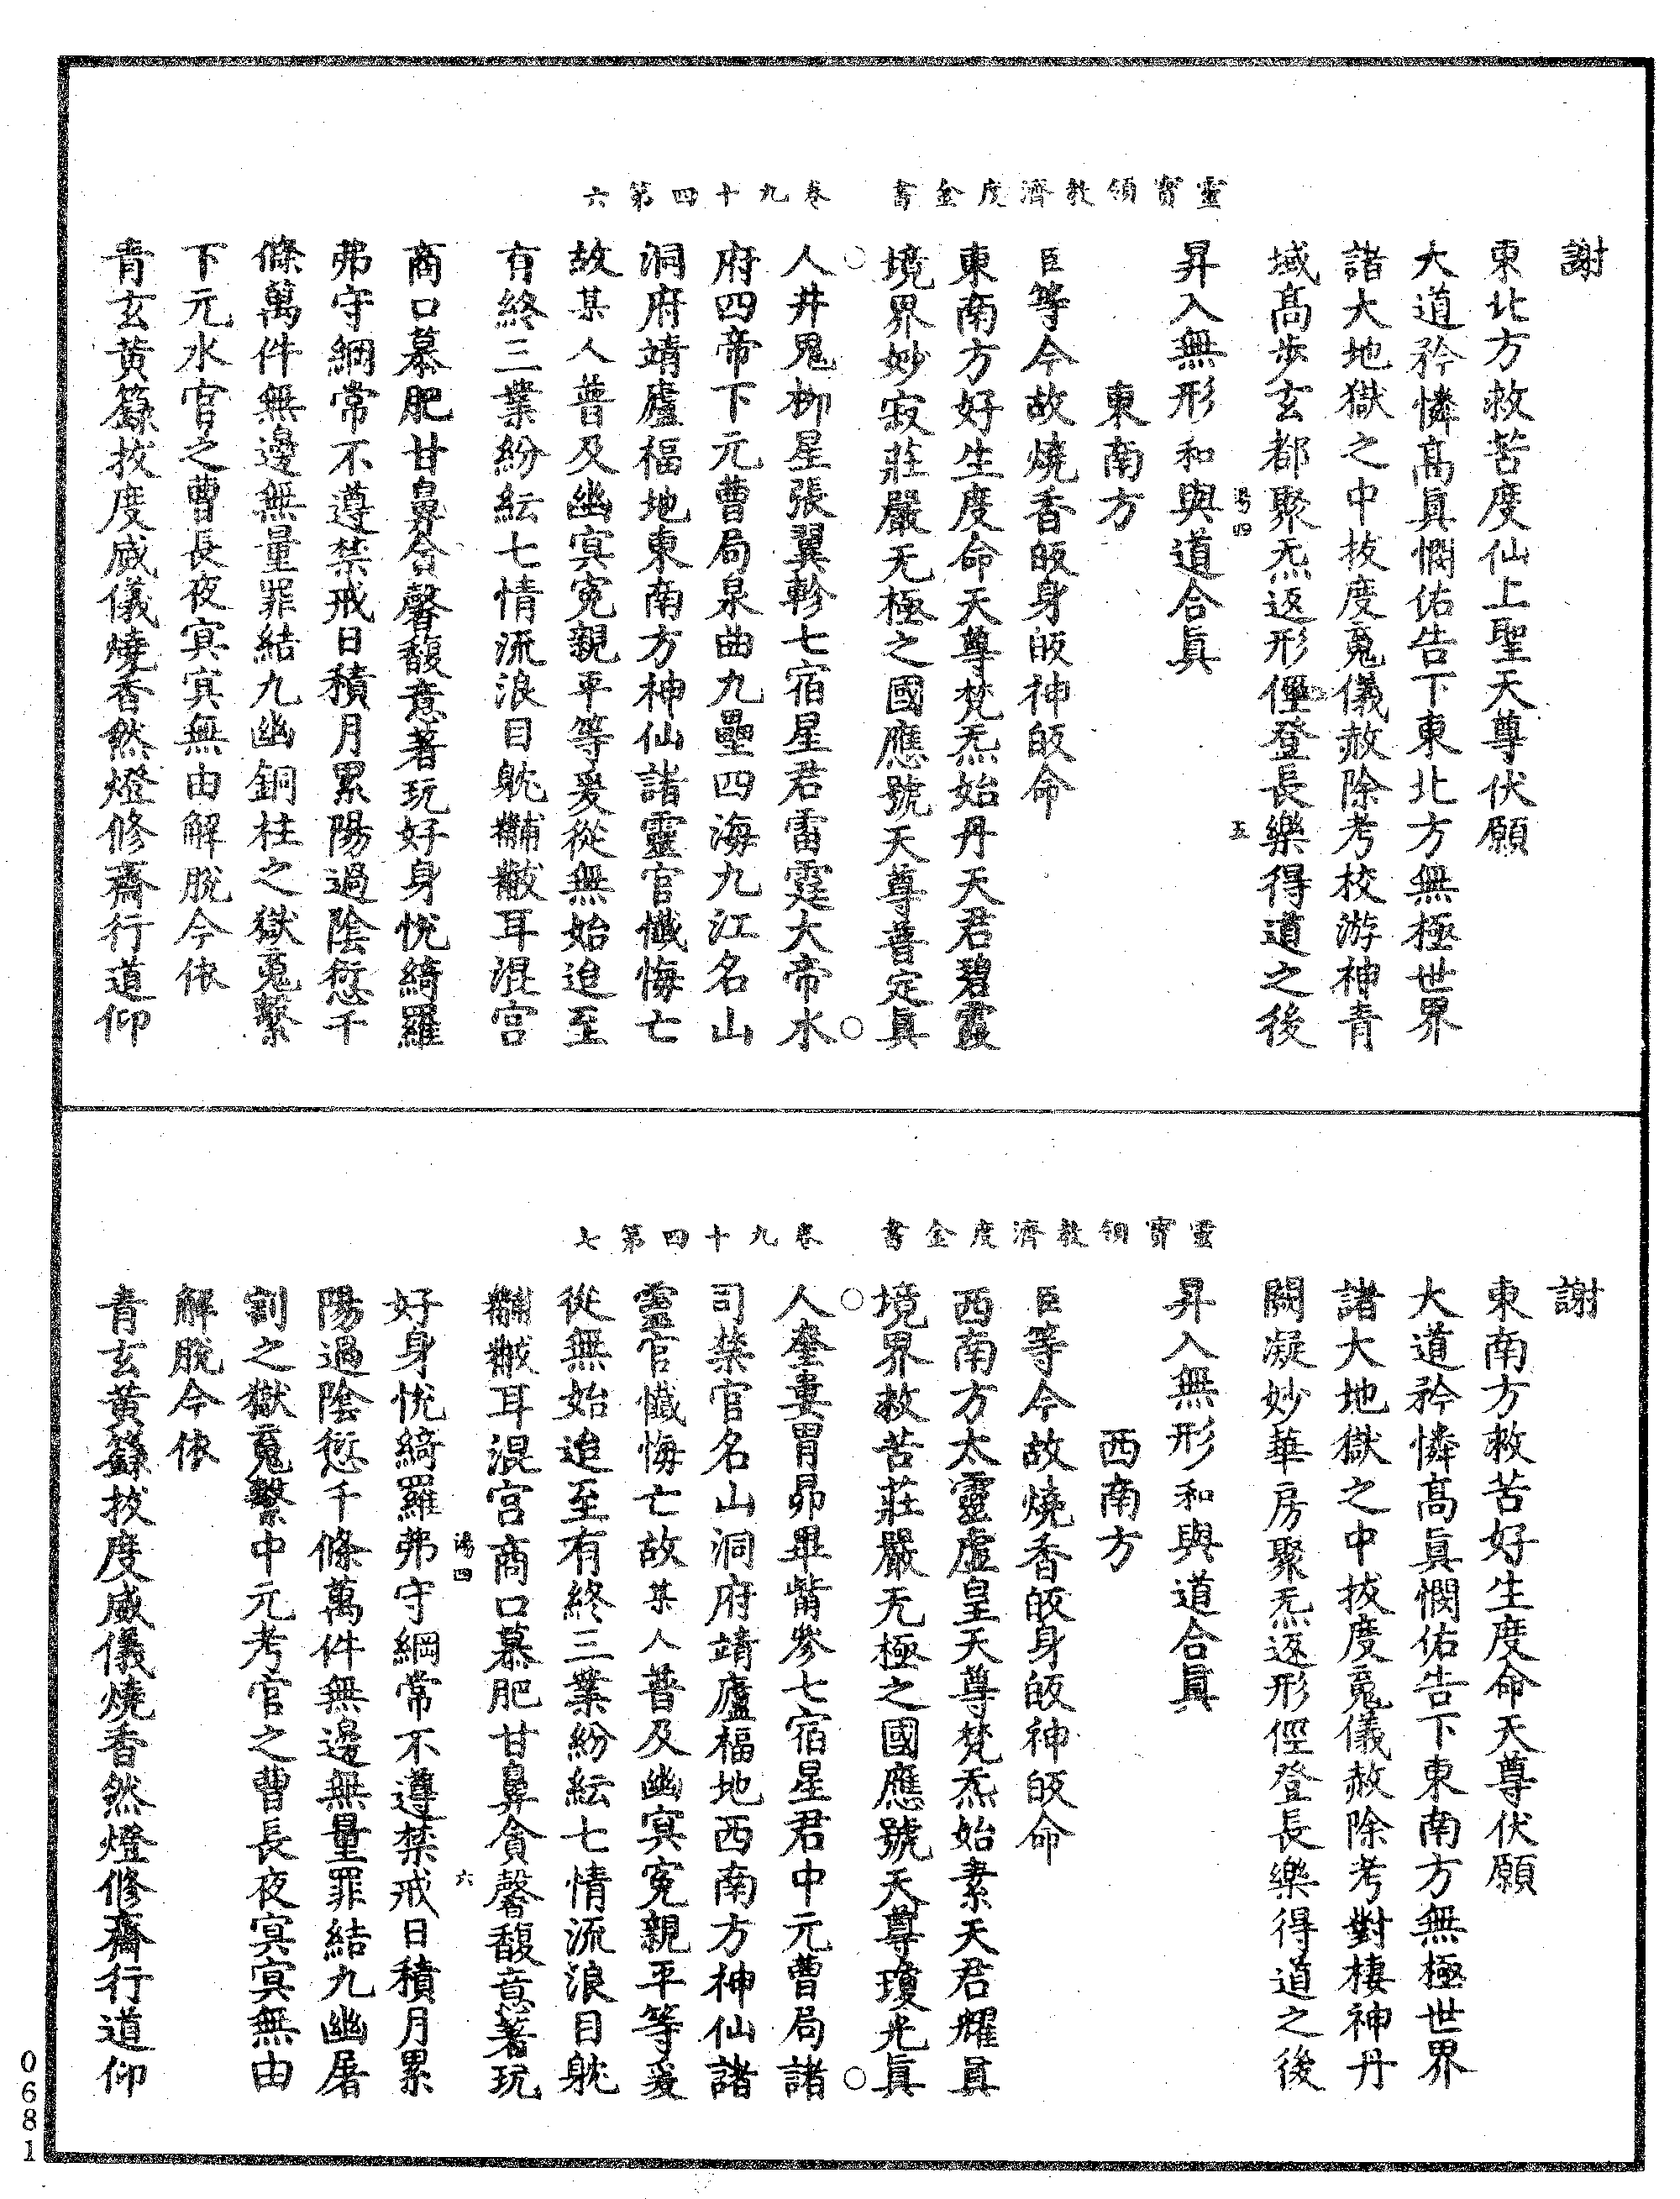 靈寳領教濟度金書　卷九十四第六
謝
東北方救苦度仙上聖天尊伏願
大道矜憐髙眞憫佑告下東北方無極世界
諸大地獄之中拔度䰟儀赦除考校游神青
域髙步玄都聚炁返形徑登長樂得道之後
昇入無形和與道合眞
湯四　五
東南方
臣等今故燒香皈身皈神皈命
東南方好生度命天尊梵炁始丹天君碧霞
境界妙寂莊嚴无極之國應號天尊普定眞
人井鬼柳星張翼軫七宿星君雷霆大帝水
府四帝下元曹局泉曲九壘四海九江名山
洞府靖廬福地東南方神仙諸靈官懺悔亡
故某人普及幽冥寃親平等爰從無始迨至
有終三業紛紜七情流浪目躭黼黻耳混宫
商口慕肥甘鼻貪馨馥意著玩好身恱綺羅
弗守綱常不遵禁戒日積月累陽過陰愆千
條萬件無邊無量罪結九幽銅柱之獄䰟繫
下元水官之曹長夜冥冥無由解脫今依
青玄黄籙拔度威儀燒香然燈修齋行道仰
靈寳領教濟度金書　卷九十四第七
謝
東南方救苦好生度命天尊伏願
大道矜憐髙眞憫佑告下東南方無極世界
諸大地獄之中拔度䰟儀赦除考對棲神丹
闕凝妙華房聚炁返形徑登長樂得道之後
昇入無形和與道合眞
西南方
臣等今故燒香皈身皈神皈命
西南方太靈虛皇天尊梵炁始素天君耀眞
境界救苦莊嚴无極之國應號天尊瓊光眞
人奎婁胃昴畢觜參七宿星君中元曹局諸
司禁官名山洞府靖廬福地西南方神仙諸
靈官懺悔亡故某人普及幽冥寃親平等爰
從無始迨至有終三業紛紜七情流浪目躭
黼黻耳混宫商口慕肥甘鼻貪馨馥意著玩
湯四　六
好身恱綺羅弗守綱常不遵禁戒日積月累
陽過陰愆千條萬件無邊無量罪結九幽屠
割之獄䰟繫中元考官之曹長夜冥冥無由
解脫今依
青玄黄籙拔度威儀燒香然燈修齋行道仰
0681